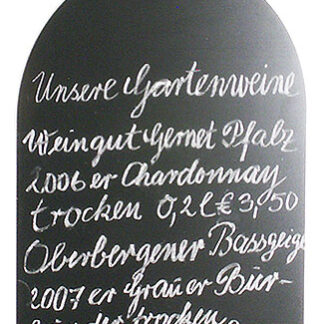 Unsere Gartenweine
Weingut Gernet Pfalz
2006er Chardonnay
trocken 0,2l € 3,50
Oberbergener Bassgeige
2007er Grauer Bur-
trocken